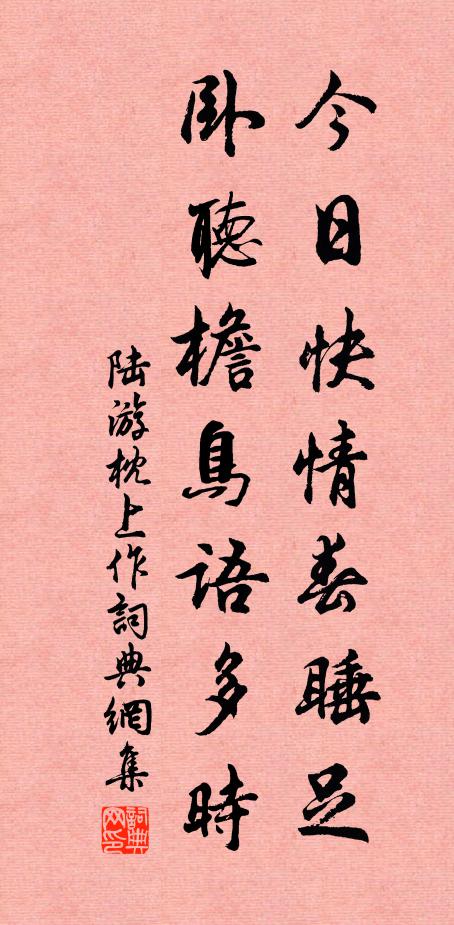 今日快情春睡足
卧聽檐鳥語多時
陆游枕上作詞典網集
詞典网印